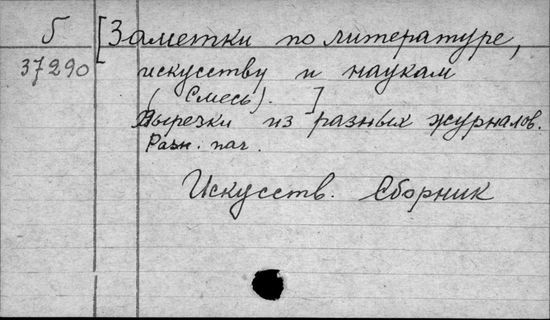 Б
37290
[Заметки по литературе,
искусству и наукам
(Смесь). ]
Вырезки из разных журналов.
Разн. паг.
Искусств. Сборник